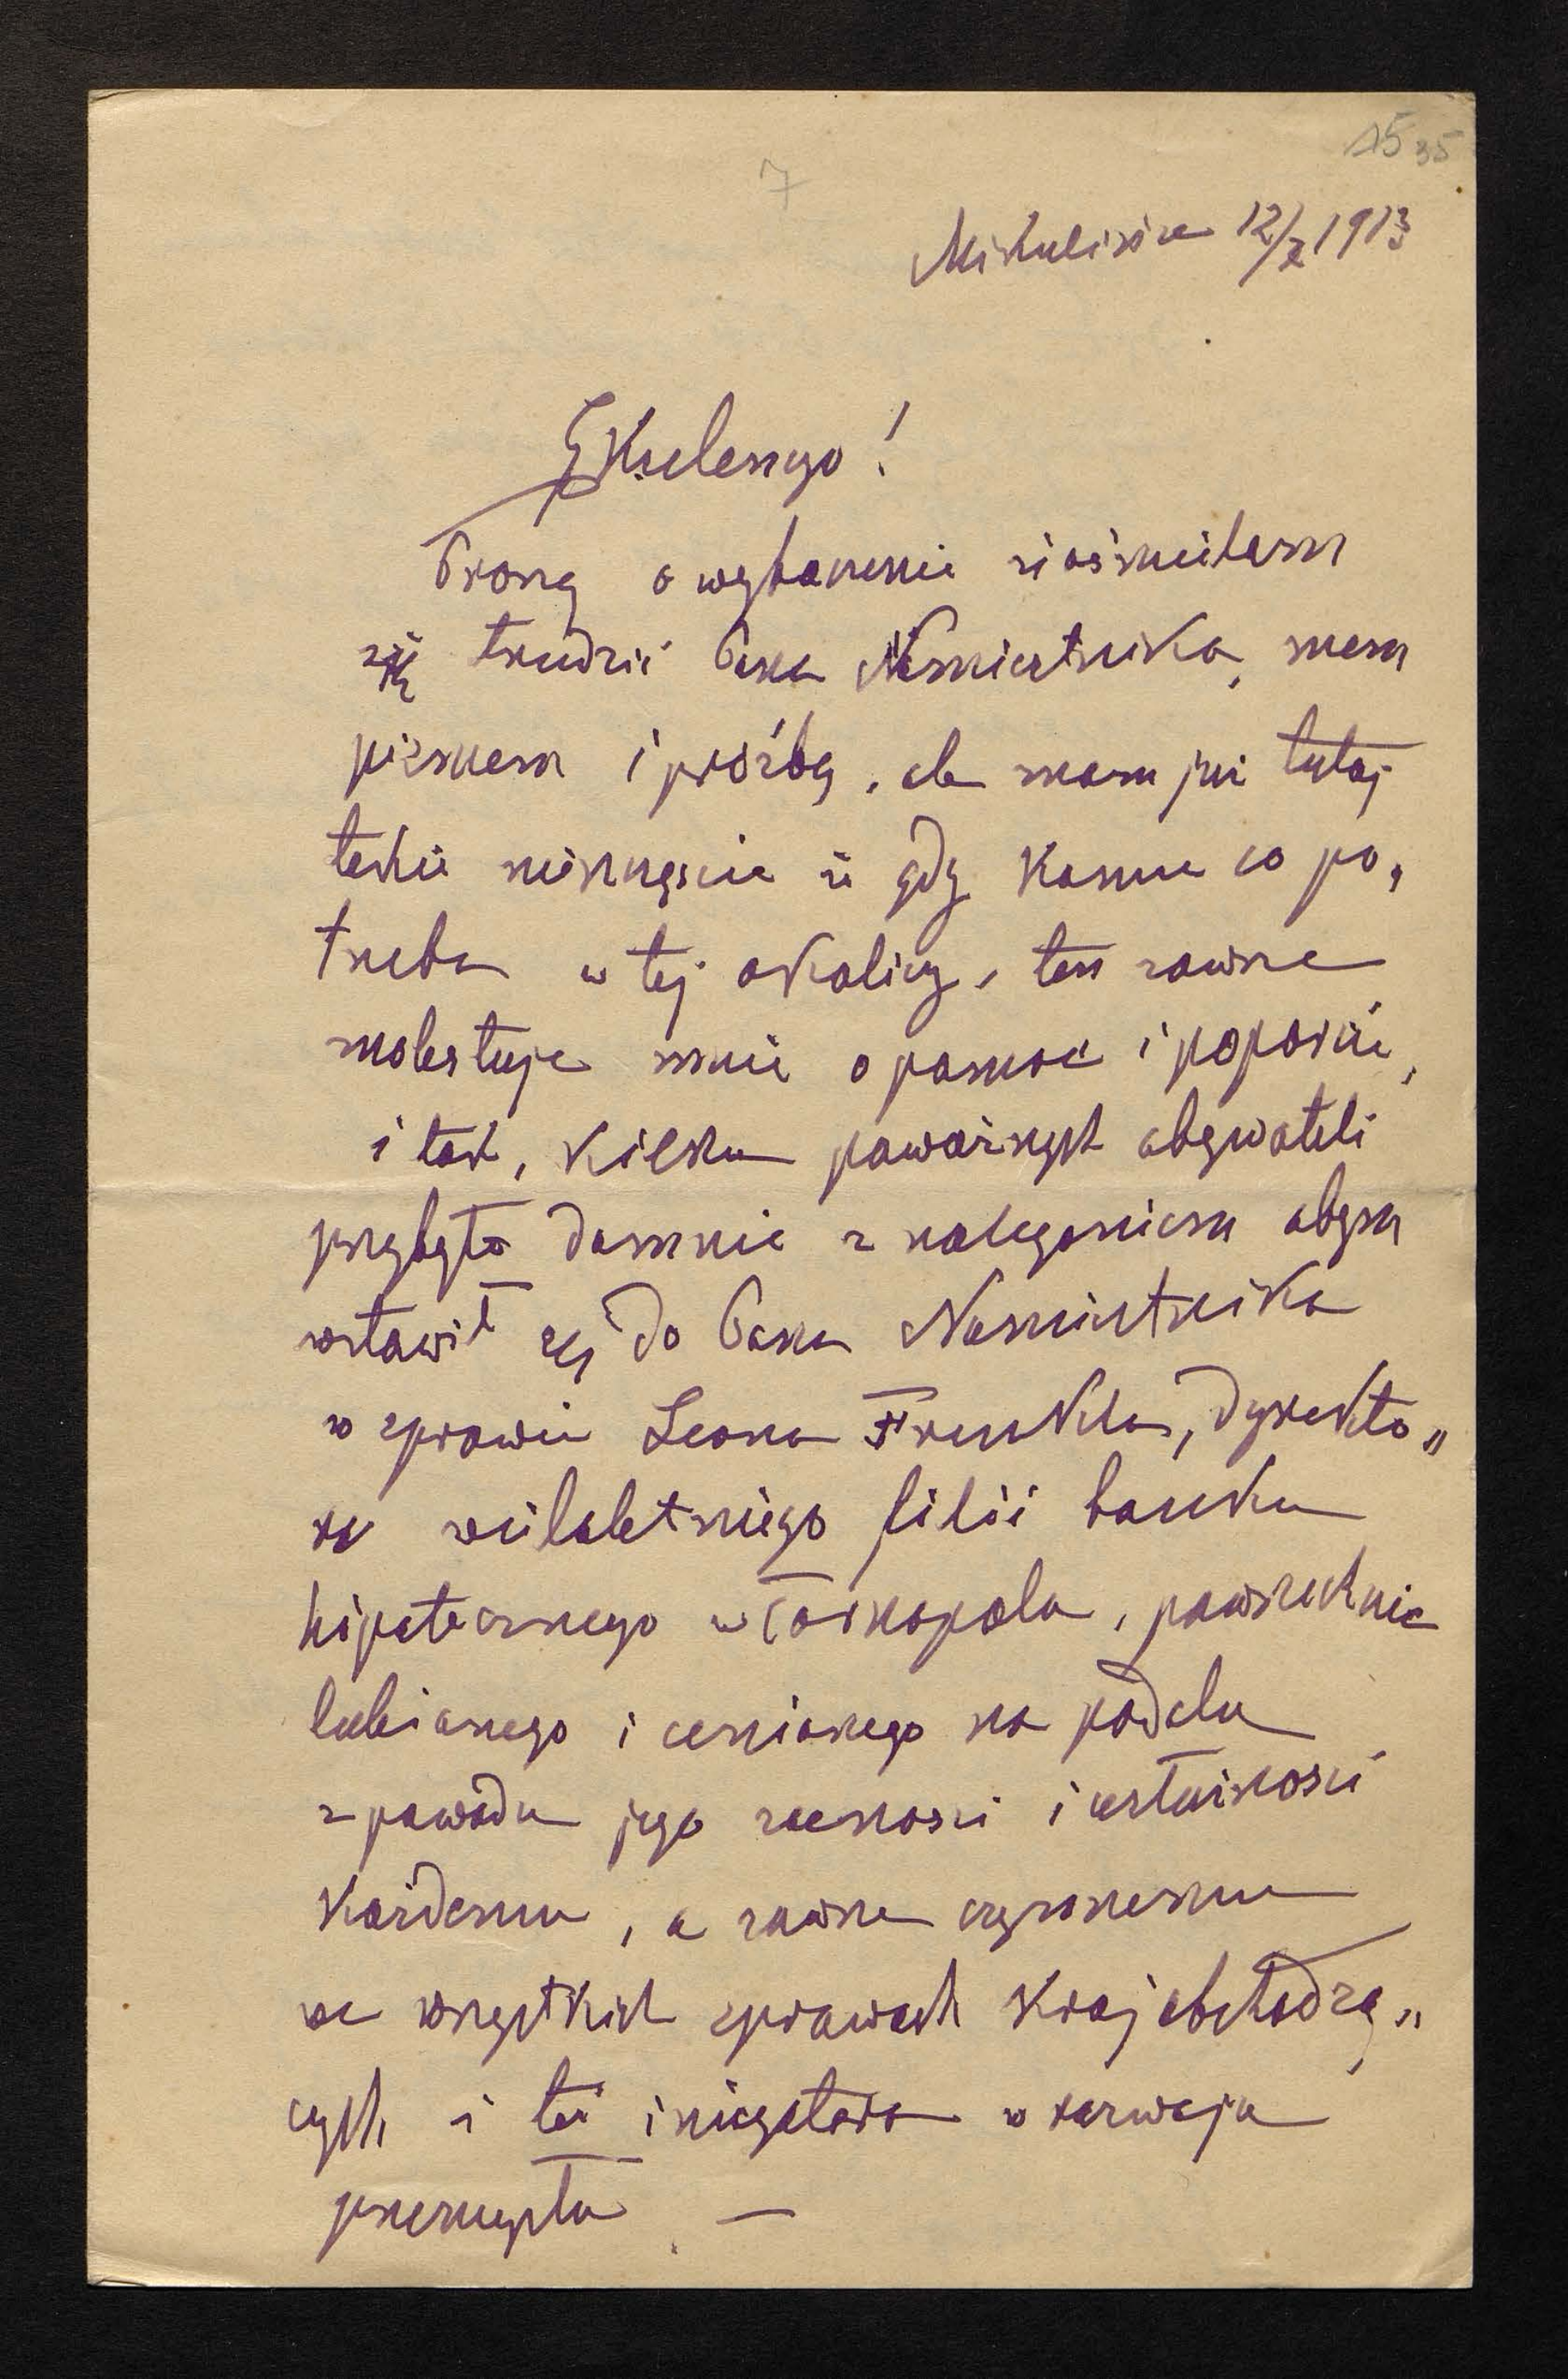 15 35
7
Mikulińce 12/X 1913
Ekscelencyo!
Proszę o wybaczenie że ośmielam
się trudzić Pana Namiestnika, mem
pismem i prośbą, ale mam już tutaj
takie nieszczęście że gdy komu co po„
trzeba w tej okolicy, ten zawsze
molestuje mnie o pomoc i poparcie,
i tak, kilku poważnych obywateli
przybyło do mnie z naleganiem abym
wstawił się do Pana Namiestnika
w sprawie Leona Frenkla, dyrekto„
ra wieloletniego filii banku
hipotecznego w Tarnopolu, powszechnie
lubianego i cenionego na podolu
z powodu jego zacności i usłużności
każdemu, a zawsze czynnemu
we wszystkich sprawach kraj obchodzą„
cych i też inicyatora w rozwoju
przemysłu —